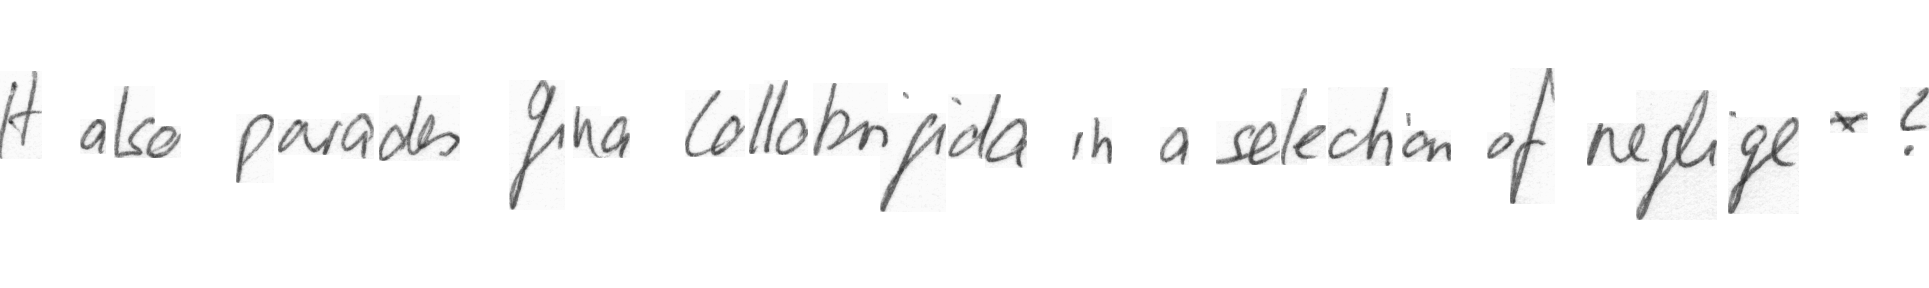 It also parades Gina Lollobrigida in a selection of neglige * ?